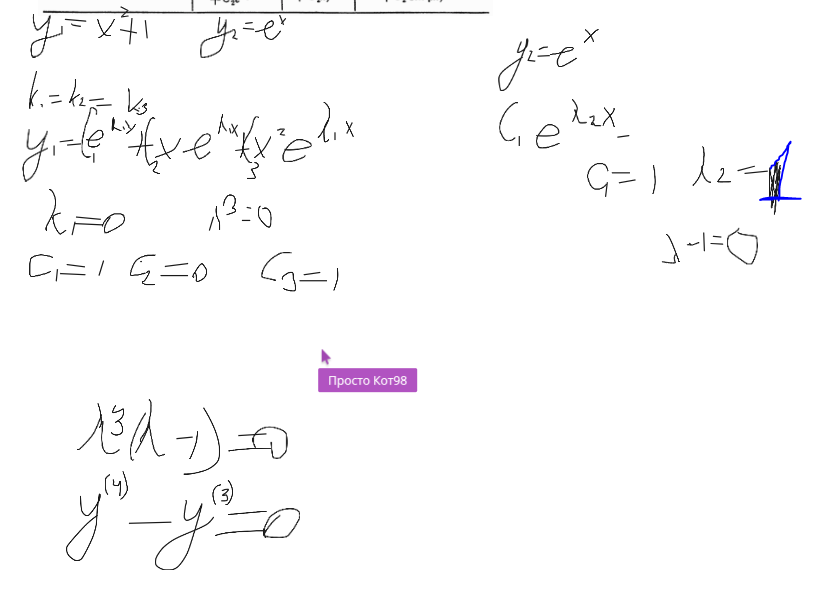 y₁ = x²+1   y₂ = eˣ
k₁ = k₂ = k₃
y₁ = C₁e^(λ₁x) + C₂x e^(λ₁x) + C₃x² e^(λ₁x)
λ₁ = 0   λ³ = 0
C₁ = 1   C₂ = 0   C₃ = 1
y₂ = eˣ
C₁ e^(λ₂x) =
C₁ = 1   λ₂ = 1
λ - 1 = 0
Просто Кот98
λ³(λ - 1) = 0
y⁽⁴⁾ - y⁽³⁾ = 0